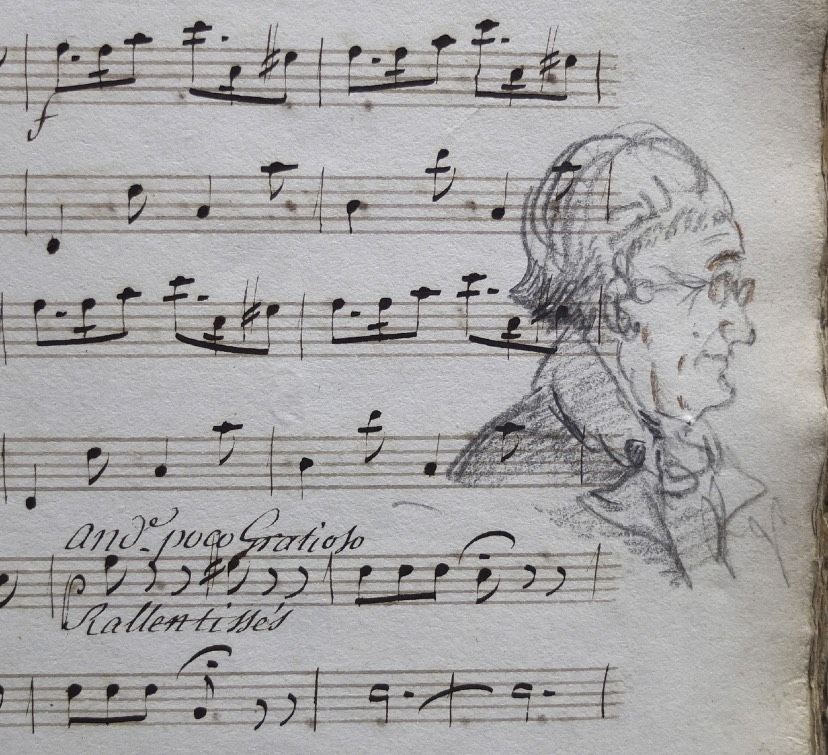 f
And.e poco Gratioso
Rallentissés